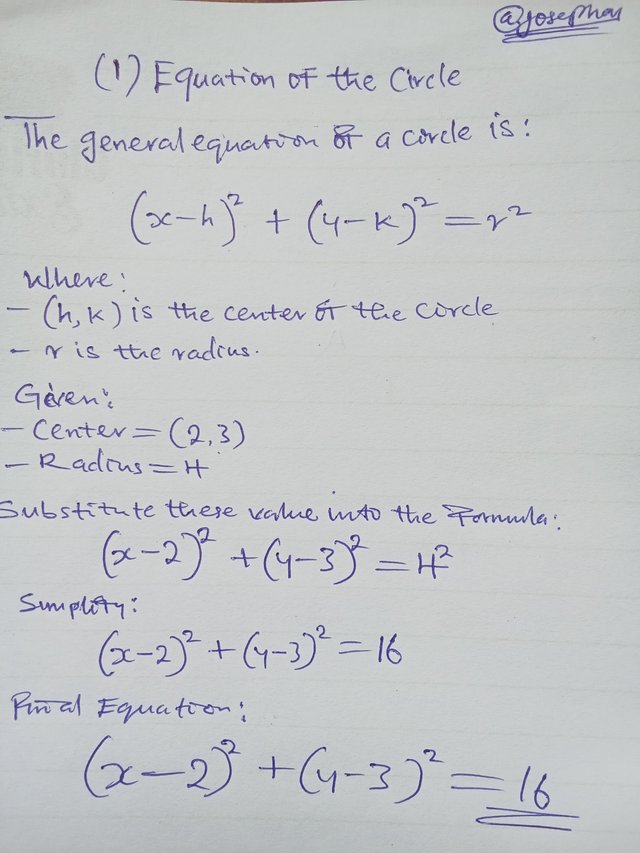 @josephav
(1) Equation of the Circle
The general equation of a circle is:
(x-h)² + (y-k)² = r²
Where:
- (h,k) is the center of the circle
- r is the radius.
Given:
- Center = (2,3)
- Radius = 4
Substitute these value into the Formula:
(x-2)² + (y-3)² = 4²
Simplify:
(x-2)² + (y-3)² = 16
Final Equation:
(x-2)² + (y-3)² = 16